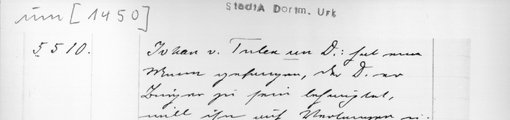 um [1450]
StadtA Dortm. Urk
5510.
Johan v. Tulen un D.: hat einen
Mann gefangen, der D. er
Bürger zu sein behauptet,
will ihn auf Verlangen